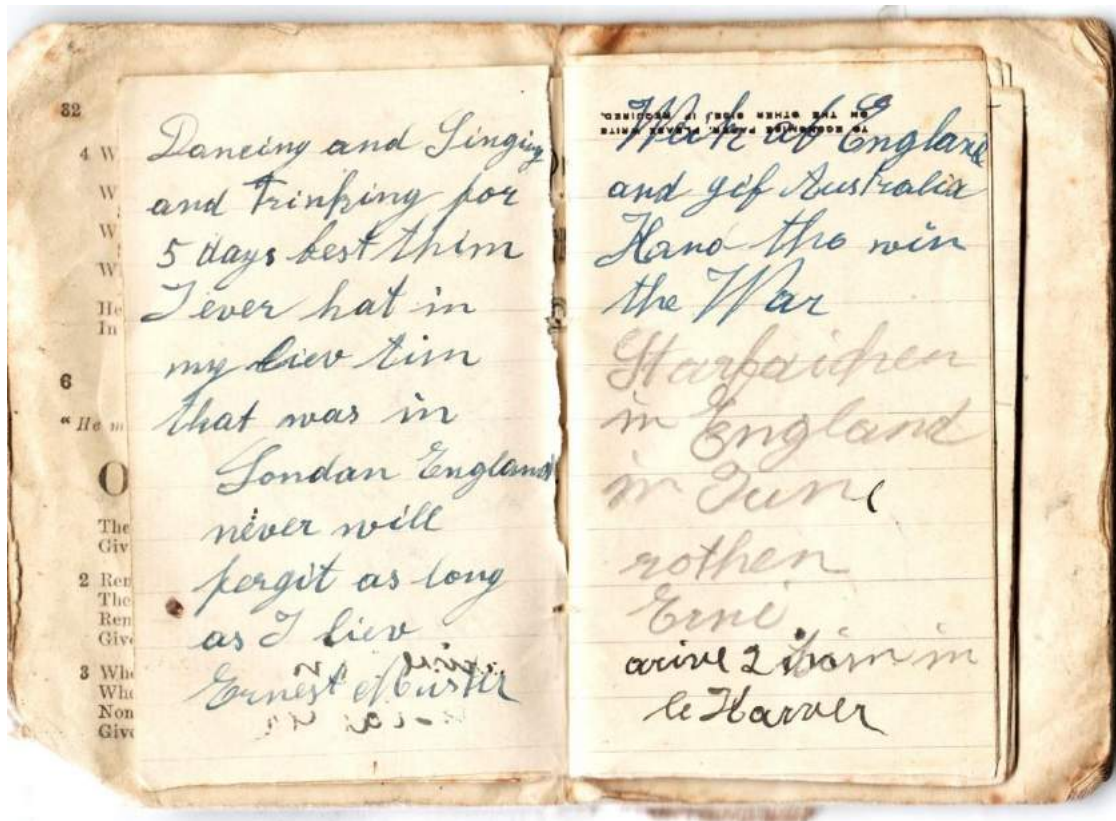 32
4 W
W
W
W
He
In
6
"He m
O
The
Giv
2 Ren
The
Ren
Give
3 Whe
Who
Non
Give
Dancing and Singing
and Trinking for
5 days best thim
I ever hat in
my liev tim
that was in
London England
never will
fergit as long
as I liev
Ernest
TO ECONOMISE PAPER, PLEASE WRITE
ON THE OTHER SIDE, IF REQUIRED.
of England
and gif Australia
Hand tho win
the War
in England
in June
rothen
Erni
arive 2 in
le Harver